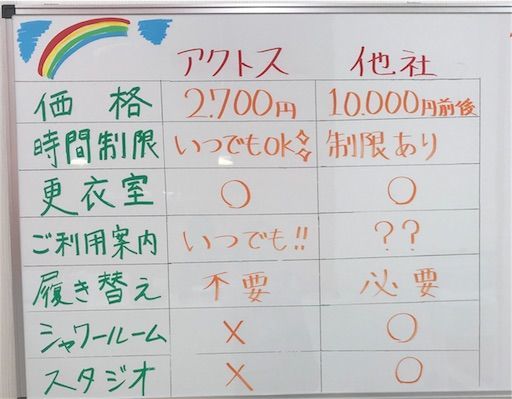 アクトス 他社
価格 2.700円 10.000円前後
時間制限 いつでもOK 制限あり
更衣室 ○ ○
ご利用案内 いつでも!! ??
履き替え 不要 必要
シャワールーム × ○
スタジオ × ○